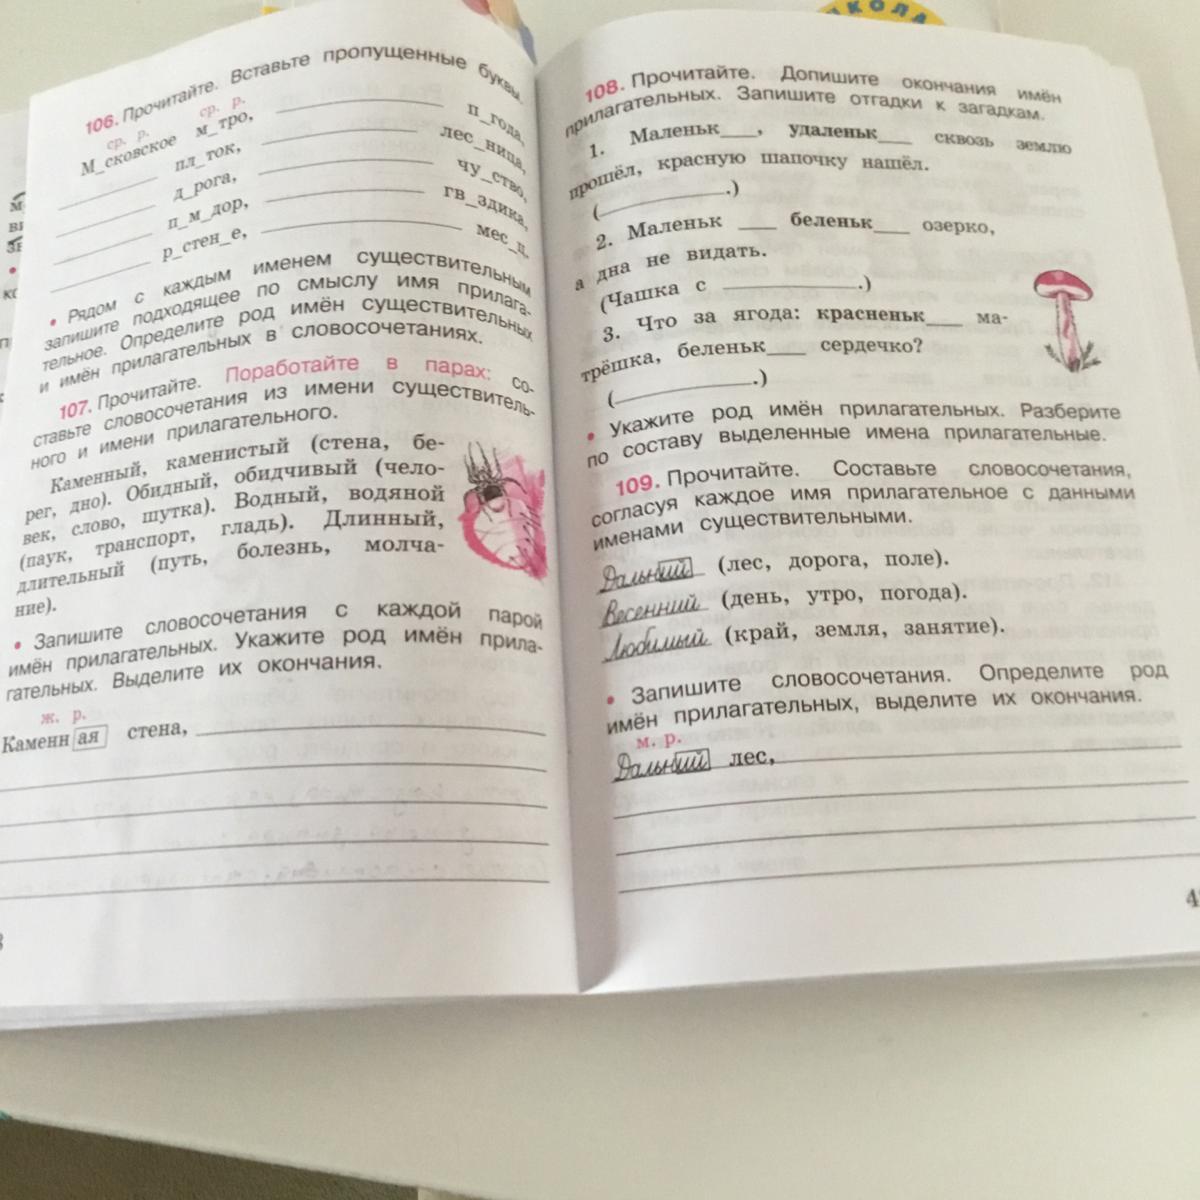 ШКОЛА
106. Прочитайте. Вставьте пропущенные буквы.
ср. р. ср. р.
М_сковское м_тро, ___ п_года,
___ пл_ток, ___ лес_ница,
___ д_рога, ___ чу_ство,
___ п_м_дор, ___ гв_здика,
___ р_стен_е, ___ мес_ц.
• Рядом с каждым именем существительным
запишите подходящее по смыслу имя прилага-
тельное. Определите род имён существительных
и имён прилагательных в словосочетаниях.
107. Прочитайте. Поработайте в парах: со-
ставьте словосочетания из имени существитель-
ного и имени прилагательного.
Каменный, каменистый (стена, бе-
рег, дно). Обидный, обидчивый (чело-
век, слово, шутка). Водный, водяной
(паук, транспорт, гладь). Длинный,
длительный (путь, болезнь, молча-
ние).
• Запишите словосочетания с каждой парой
имён прилагательных. Укажите род имён прила-
гательных. Выделите их окончания.
ж. р.
Каменная стена,
108. Прочитайте. Допишите окончания имён
прилагательных. Запишите отгадки к загадкам.
1. Маленьк___, удаленьк___ сквозь землю
прошёл, красную шапочку нашёл.
(___.)
2. Маленьк ___ беленьк___ озерко,
а дна не видать.
(Чашка с ___.)
3. Что за ягода: красненьк___ ма-
трёшка, беленьк___ сердечко?
(___.)
• Укажите род имён прилагательных. Разберите
по составу выделенные имена прилагательные.
109. Прочитайте. Составьте словосочетания,
согласуя каждое имя прилагательное с данными
именами существительными.
Дальний (лес, дорога, поле).
Весенний (день, утро, погода).
Любимый (край, земля, занятие).
• Запишите словосочетания. Определите род
имён прилагательных, выделите их окончания.
м. р.
Дальний лес,